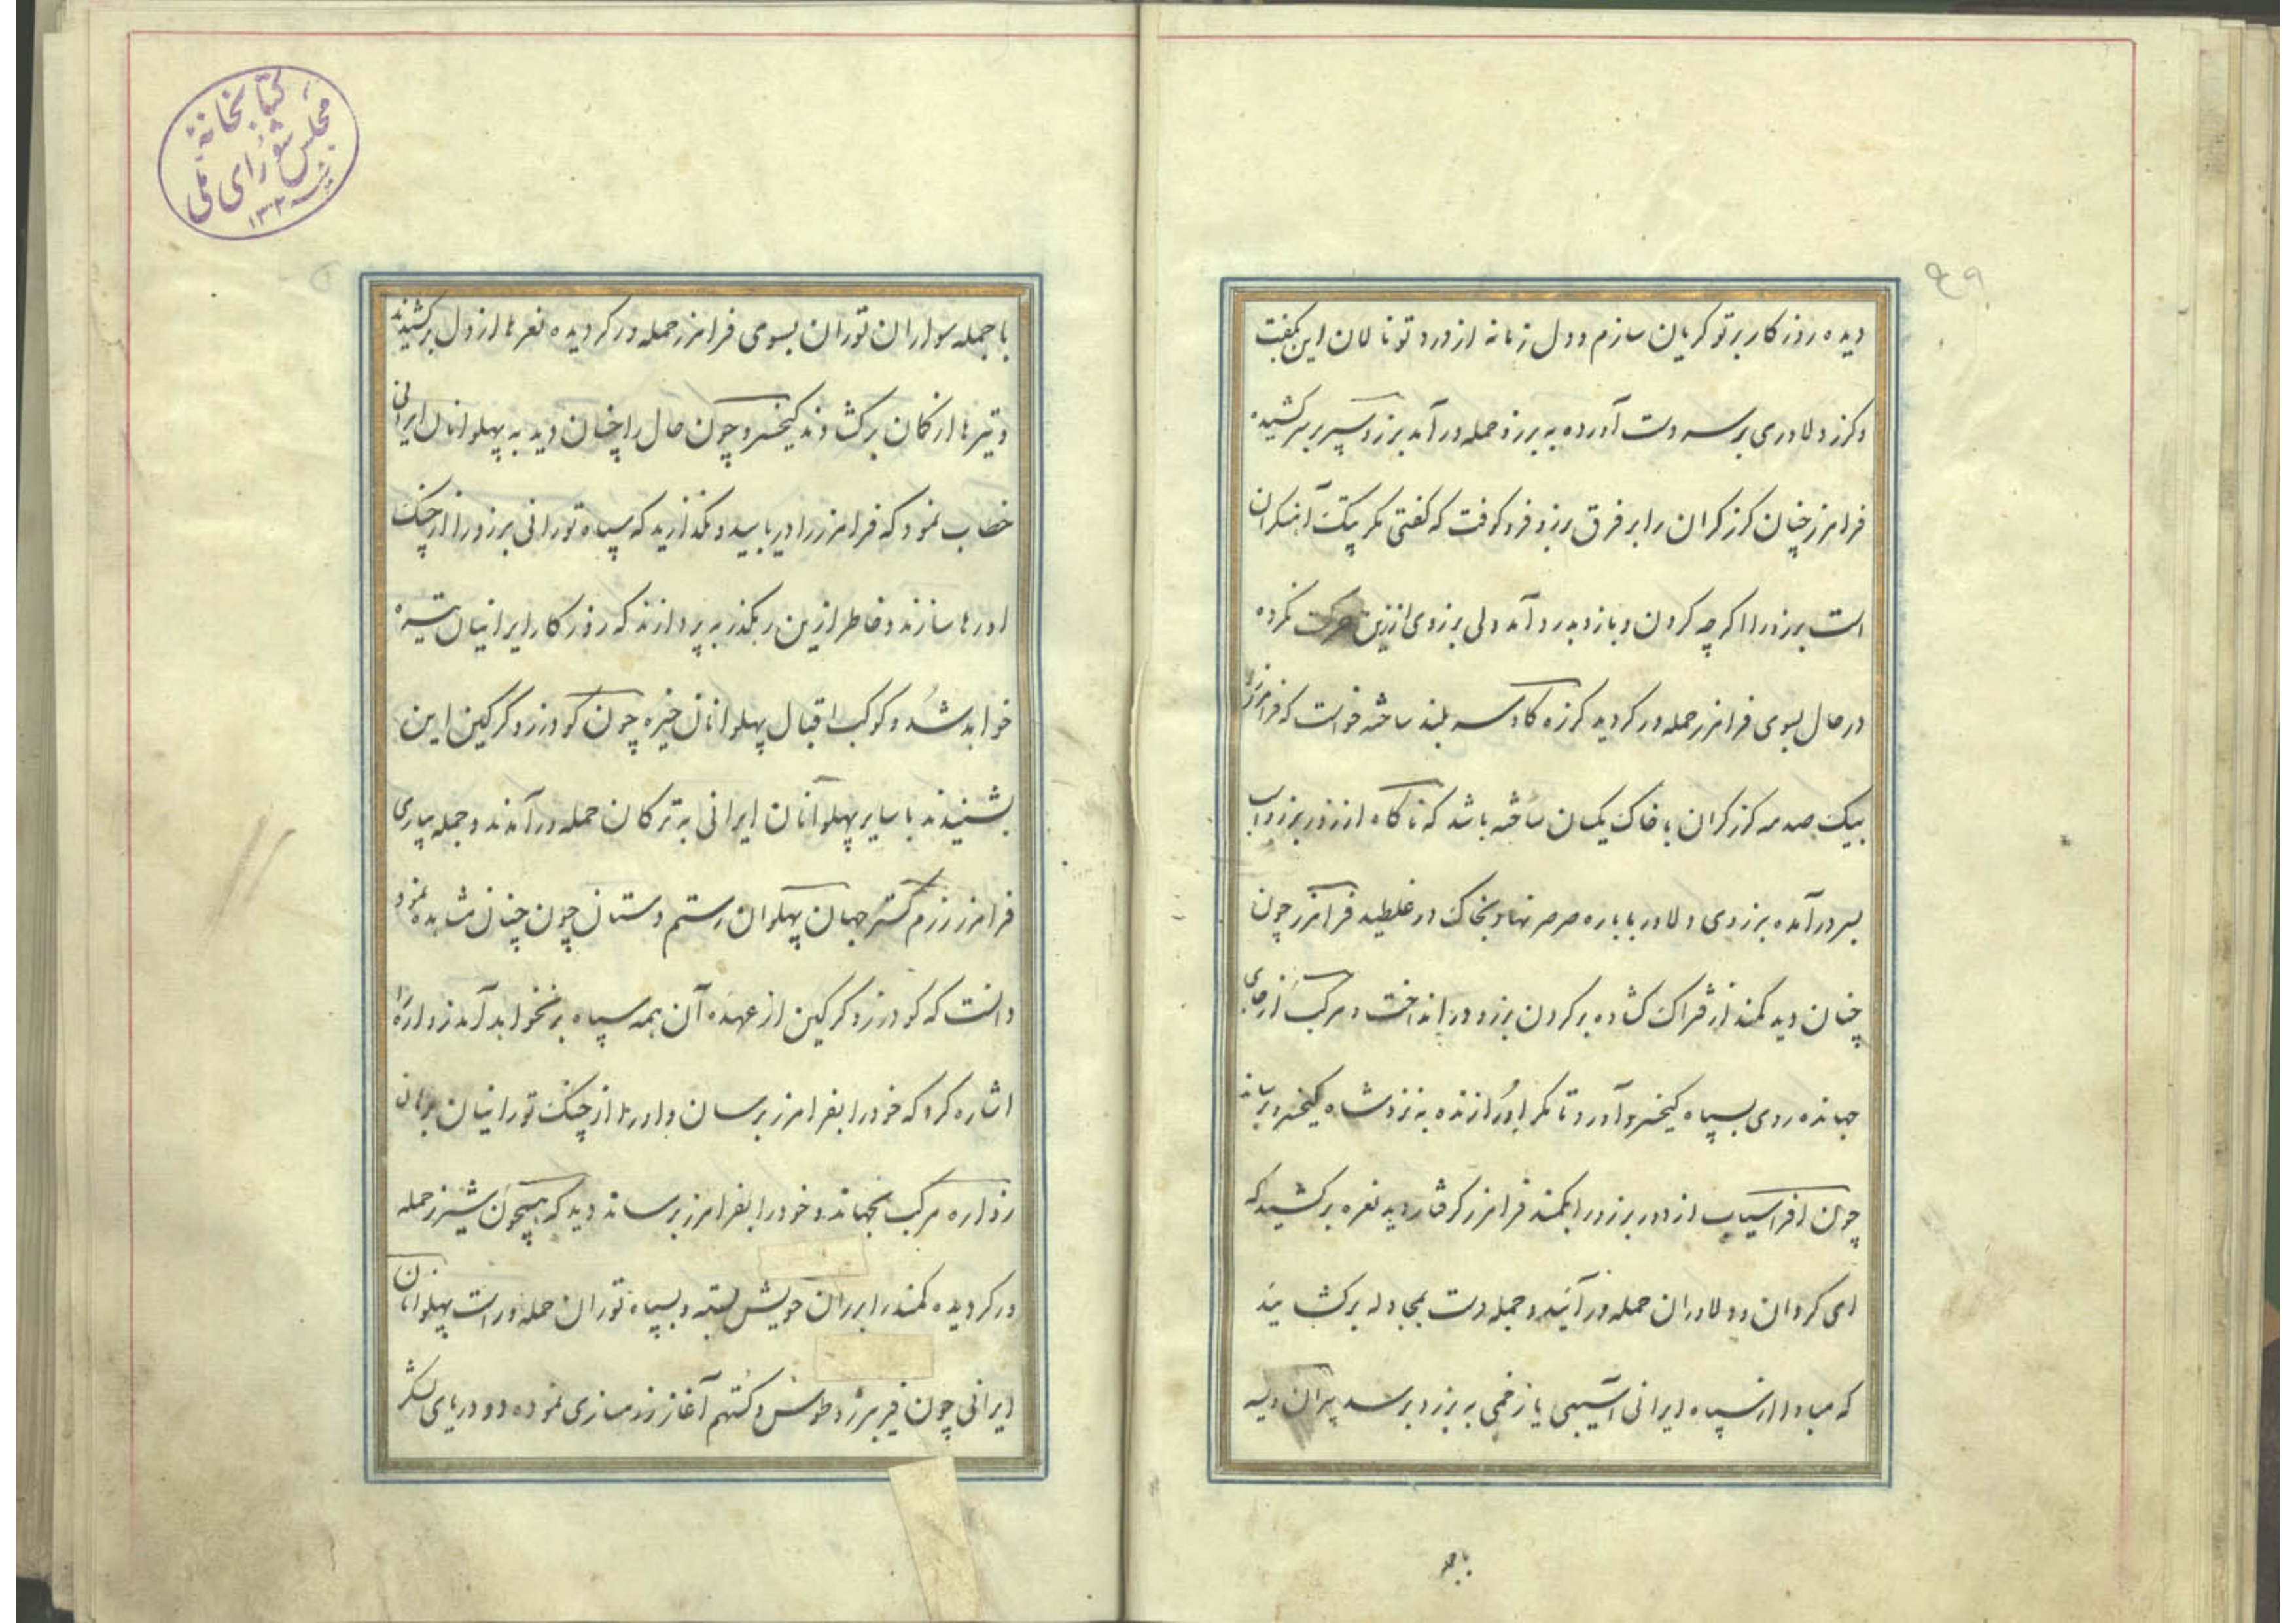 دیده روزکار بر تو کریان سازم و دل زمانه از درد تو نالان این بکفت
و کرز دلاوری بر سر دست آورده به برزو حمله در آمد برزو سپر بر سر کشیده
فرامرز چنان کرز کران را بر فرق برزو فرو کوفت که کفتی مکر پتک آهنکران
است برزو را اکرچه کردن و بازو بدرد آمد ولی برزوی از زین حرکت نکرده
در حال بسوی فرامرز حمله ور کردید کرزه کاوسر بلند ساخته خواست که فرامرز را
بیک صدمه کرز کران با خاک یکسان ساخته باشد که ناکاه از زور برزو اسب
بسر در آمده برزوی دلاور با باره صرصر نهاد بخاک در غلطید فرامرز چون
چنان دید کمند از فتراک کشاده بر کردن برزو در انداخت و مرکب از جای
جهانده روی بسپاه کیخسرو آورد تا مکر او را زنده به نزد شاه کیخسرو برساند
چون افراسیاب از دور برزو را بکمند فرامرز کرفتار دید نعره بر کشید که
ای کردان و دلاوران حمله در آئید و جمله دست بمجادله بر کشائید
که مبادا از سپاه ایرانی آسیبی یا زخمی به برزو برسد پیران ویسه
با جمله
کتابخانهٔ
مجلس شورای ملی
با جمله سواران توران بسوی فرامرز حمله ور کردیده نعرها از دل بر کشیدند
و تیرها از کمان بر کشادند کیخسرو چون حال را چنان دید به پهلوانان ایرانی
خطاب نمود که فرامرز را دریابید و نکذارید که سپاه تورانی برزو را از چنک
او رها سازند و خاطر ازین رهکذر به پردازند که روز کار ایرانیان تیره
خواهد شد و کوکب اقبال پهلوانان خیره چون کودرز و کرکین این
بشنیدند با سایر پهلوانان ایرانی به ترکان حمله در آمدند و جمله بیاری
فرامرز رزم کستر جهان پهلوان رستم دستان چون چنان مشاهده نمود
دانست که کودرز و کرکین از عهده آن همه سپاه بر نخواهد آمد زواره را
اشاره کرد که خود را بفرامرز برسان و او را از چنک تورانیان برهان
زواره مرکب بجهاند و خود را بفرامرز برساند دید که همچون شیر نر حمله
ور کردیده کمند را بر ران خویش بسته و بسپاه توران حمله ور است پهلوانان
ایرانی چون فریبرز و طوس و کستهم آغاز رزمسازی نموده دو دریای لشکر